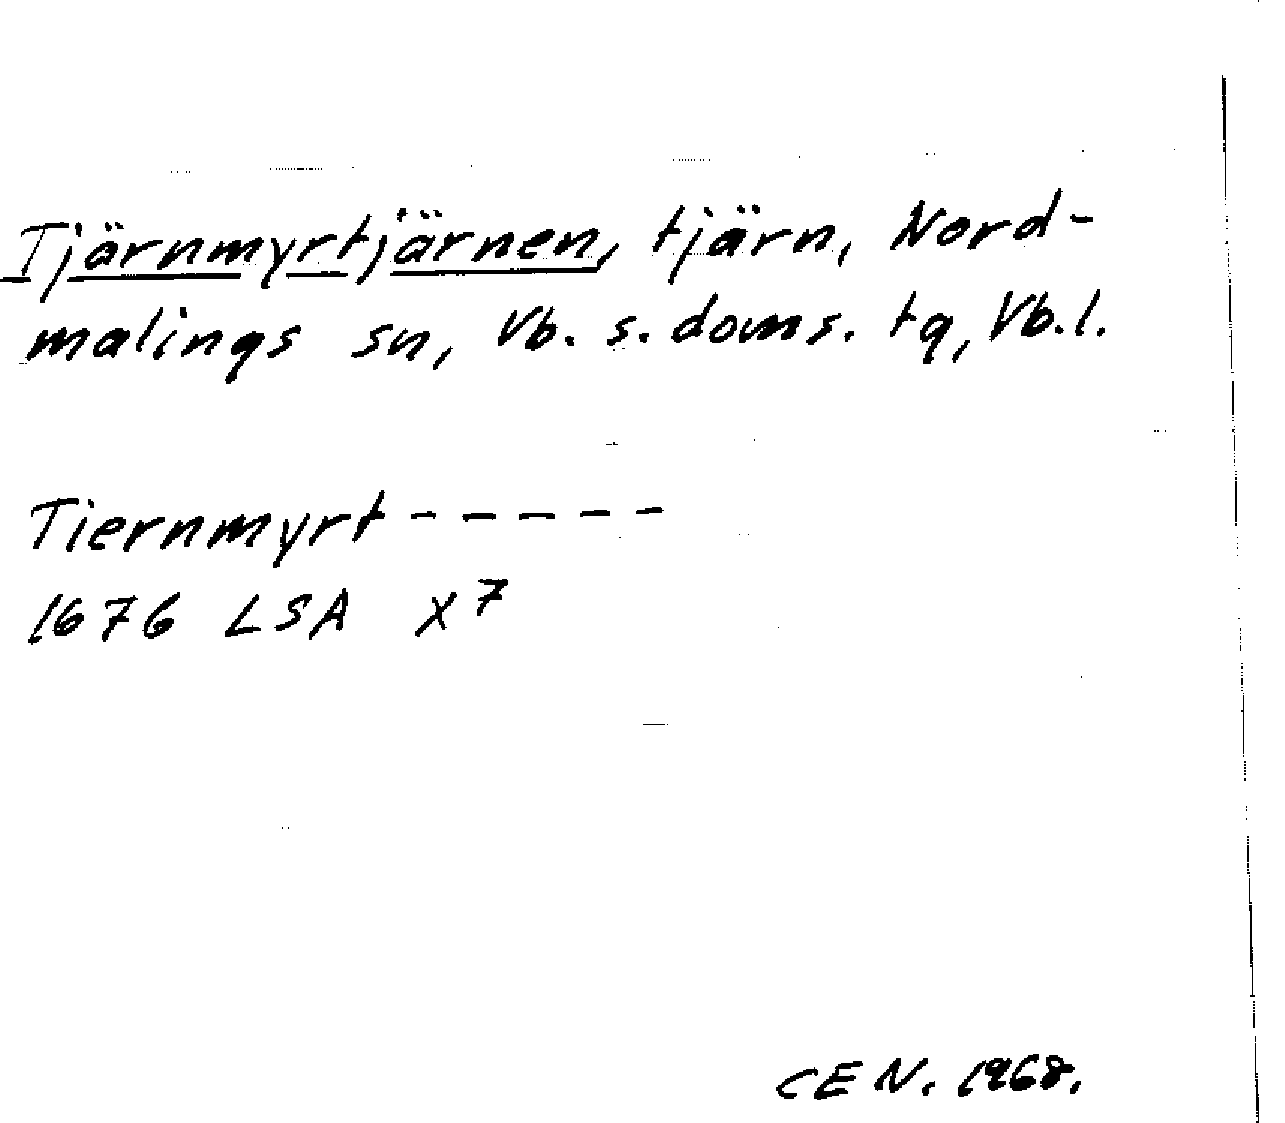 Tjärnmyrtjärnen, tjärn, Nord-
malings sn, Vb. s. doms. tg, Vb. l.
Tiernmyrt - - - - -
1676 LSA X⁷
CEN. 1968.